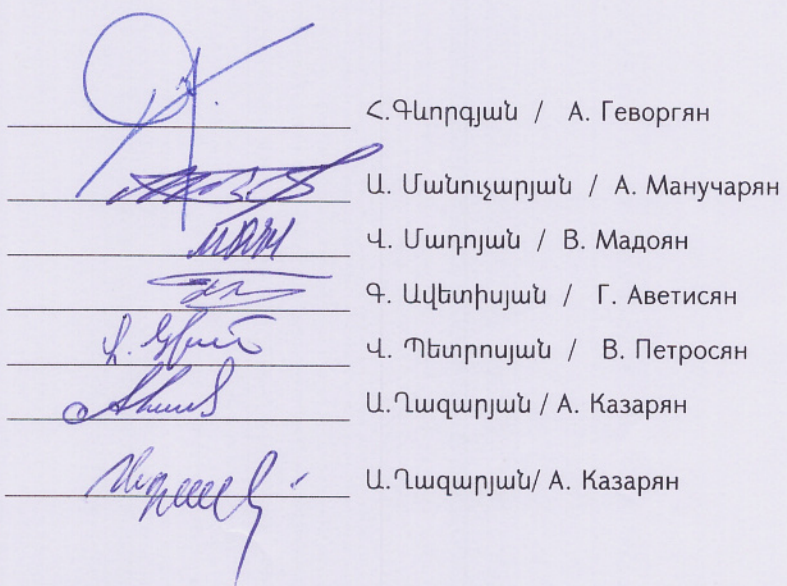 Հ.Գևորգյան / А. Геворгян
Ա. Մանուչարյան / А. Манучарян
Վ. Մադոյան / В. Мадоян
Գ. Ավետիսյան / Г. Аветисян
Վ. Պետրոսյան / В. Петросян
Ա.Ղազարյան / А. Казарян
Ա.Ղազարյան/ А. Казарян